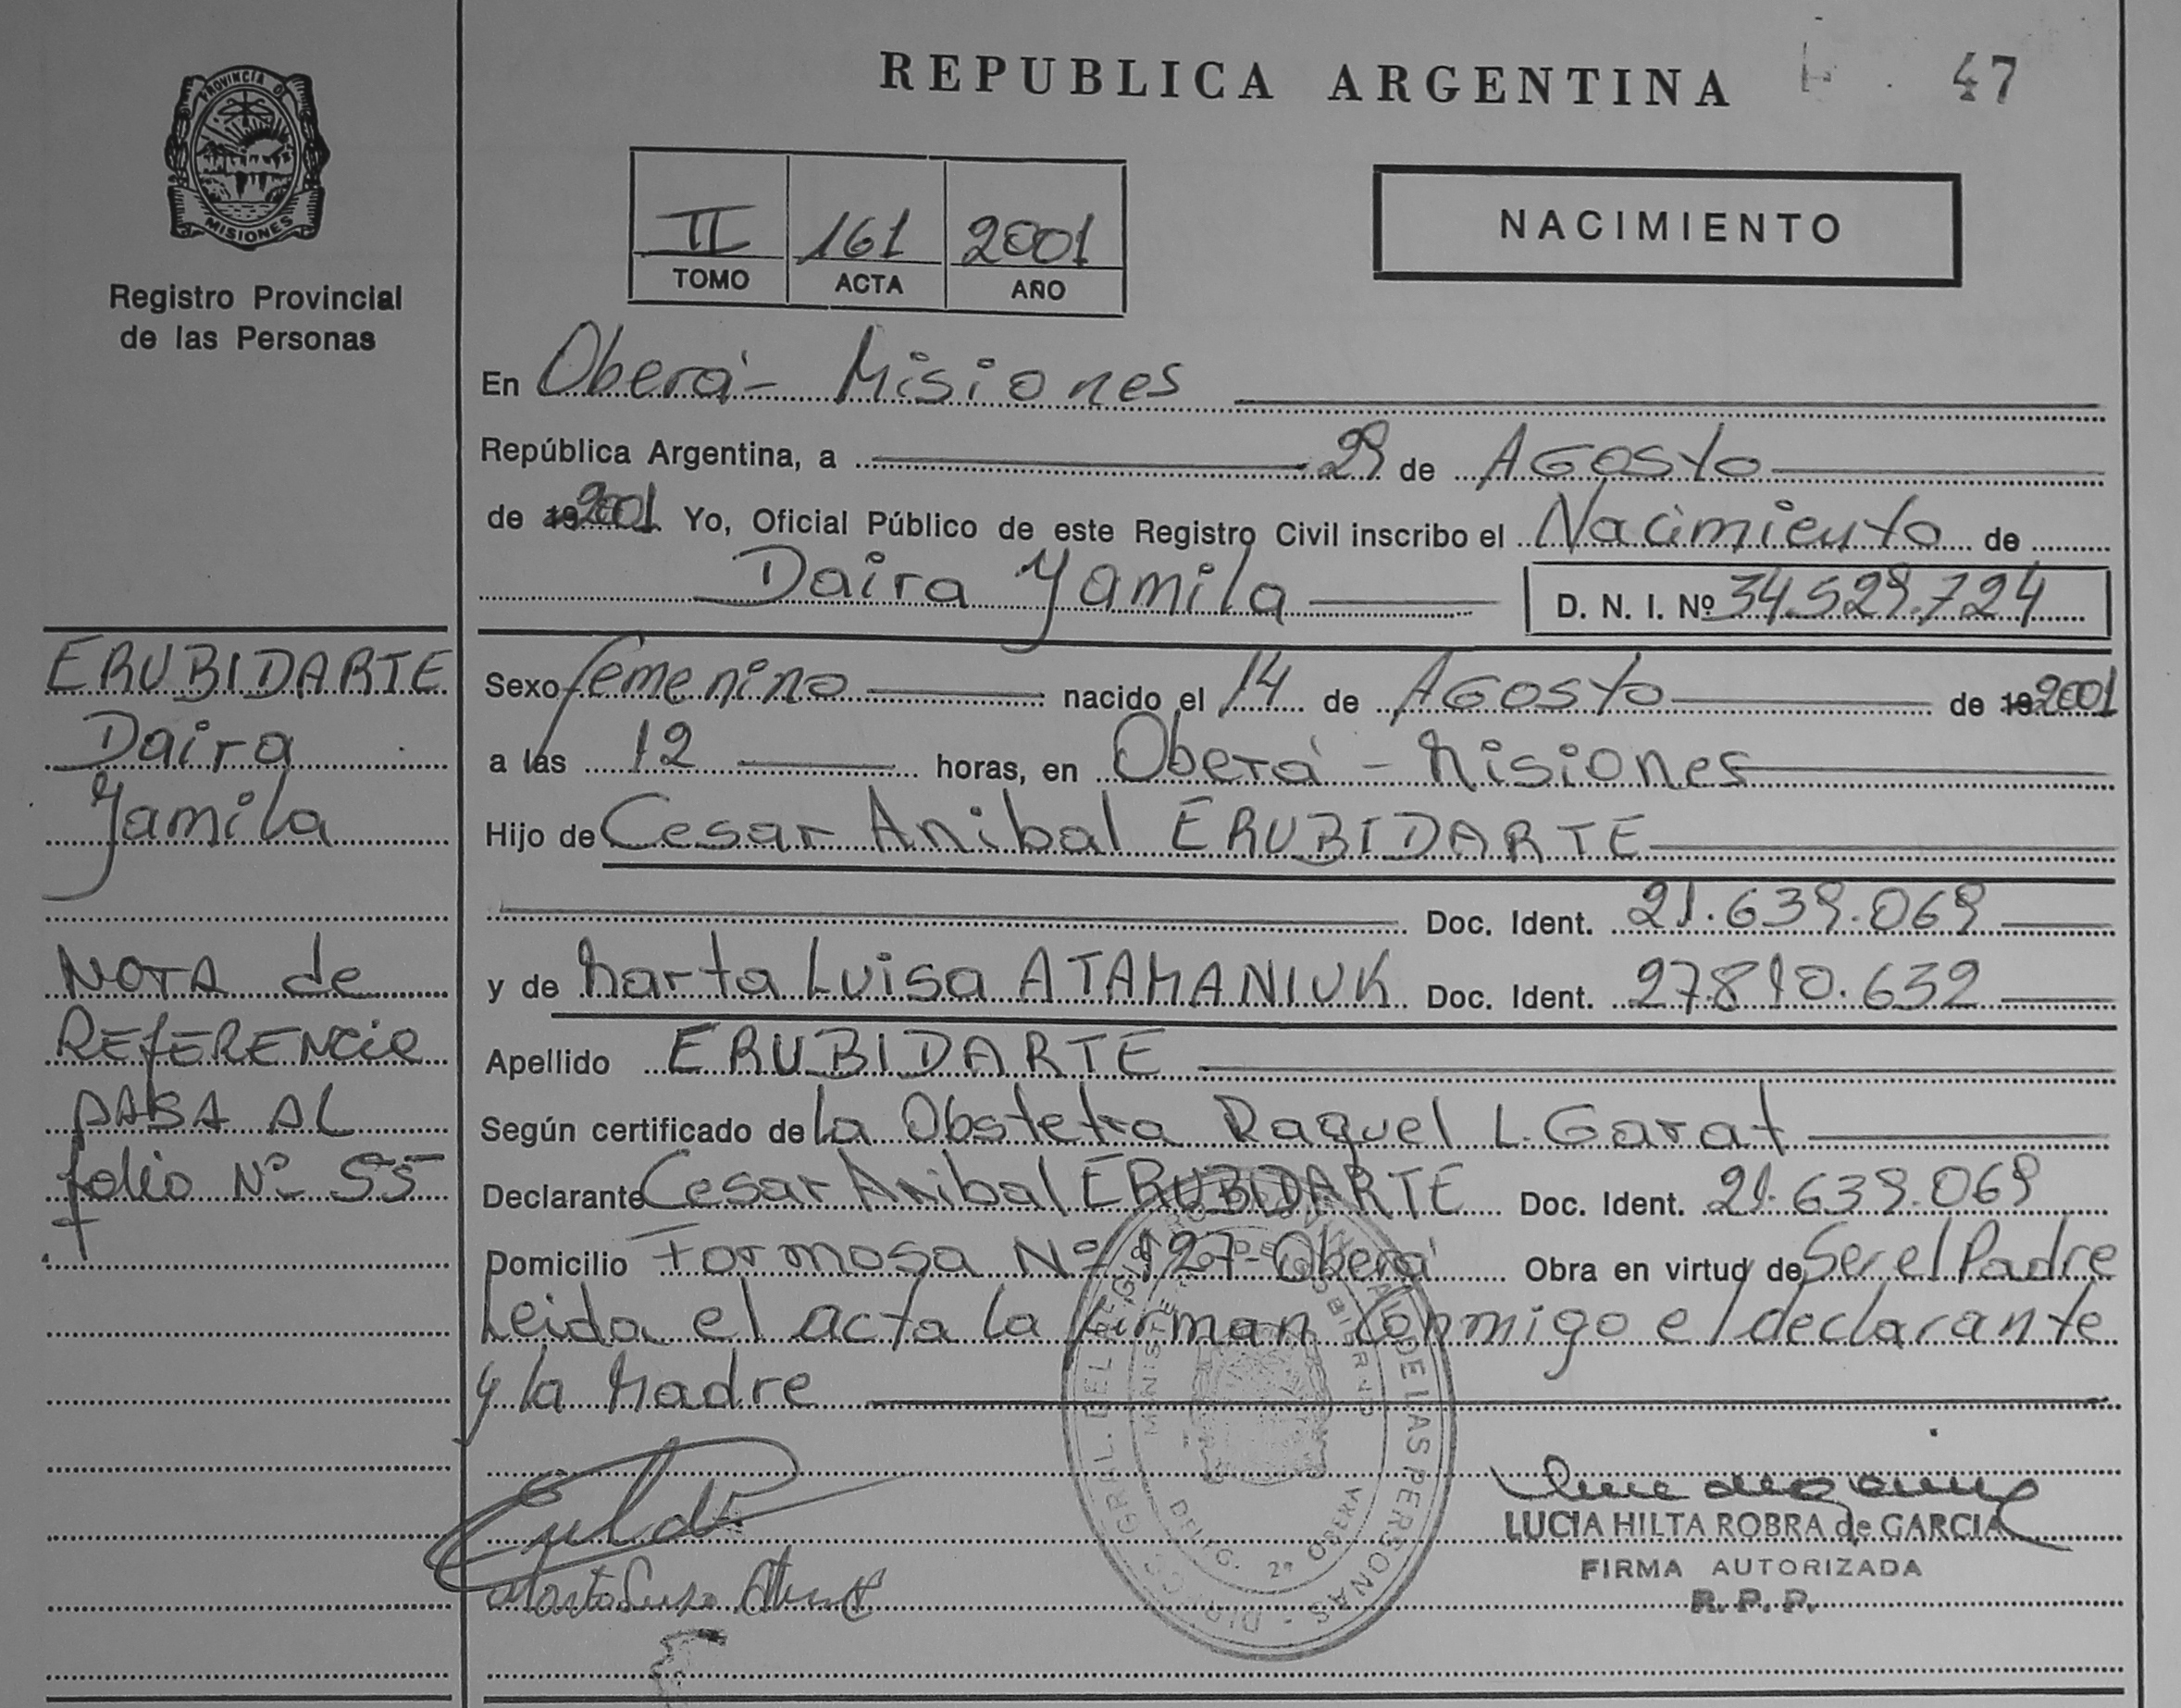 REPUBLICA ARGENTINA
47
PROVINCIA D
MISIONES
Registro Provincial
de las Personas
II 161 2001
TOMO ACTA AÑO
NACIMIENTO
En Oberá - Misiones
República Argentina, a 29 de AGosto
de 19 2001 Yo, Oficial Público de este Registro Civil inscribo el Nacimiento de
Daira Yamila D. N. I. Nº 34.529.724
ERUBIDARTE
Daira
Yamila
NOTA de
REfERENcia
PASA AL
folio Nº 55
Sexo femenino nacido el 14 de AGosto de 19 2001
a las 12 horas, en Oberá - Misiones
Hijo de Cesar Anibal ERUBIDARTE
Doc. Ident. 21.639.069
y de Marta Luisa ATAMANIUK Doc. Ident. 27.810.632
Apellido ERUBIDARTE
Según certificado de la Obstetra Raquel L. Garat
Declarante Cesar Anibal ERUBIDARTE Doc. Ident. 21.639.069
Domicilio Formosa Nº 127 - Oberá Obra en virtud de Ser el Padre
Leida el acta la firman Conmigo el declarante
y la Madre
DELEG. 2ª OBERA
LUCIA HILTA ROBRA de GARCIA
FIRMA AUTORIZADA
R. P. P.